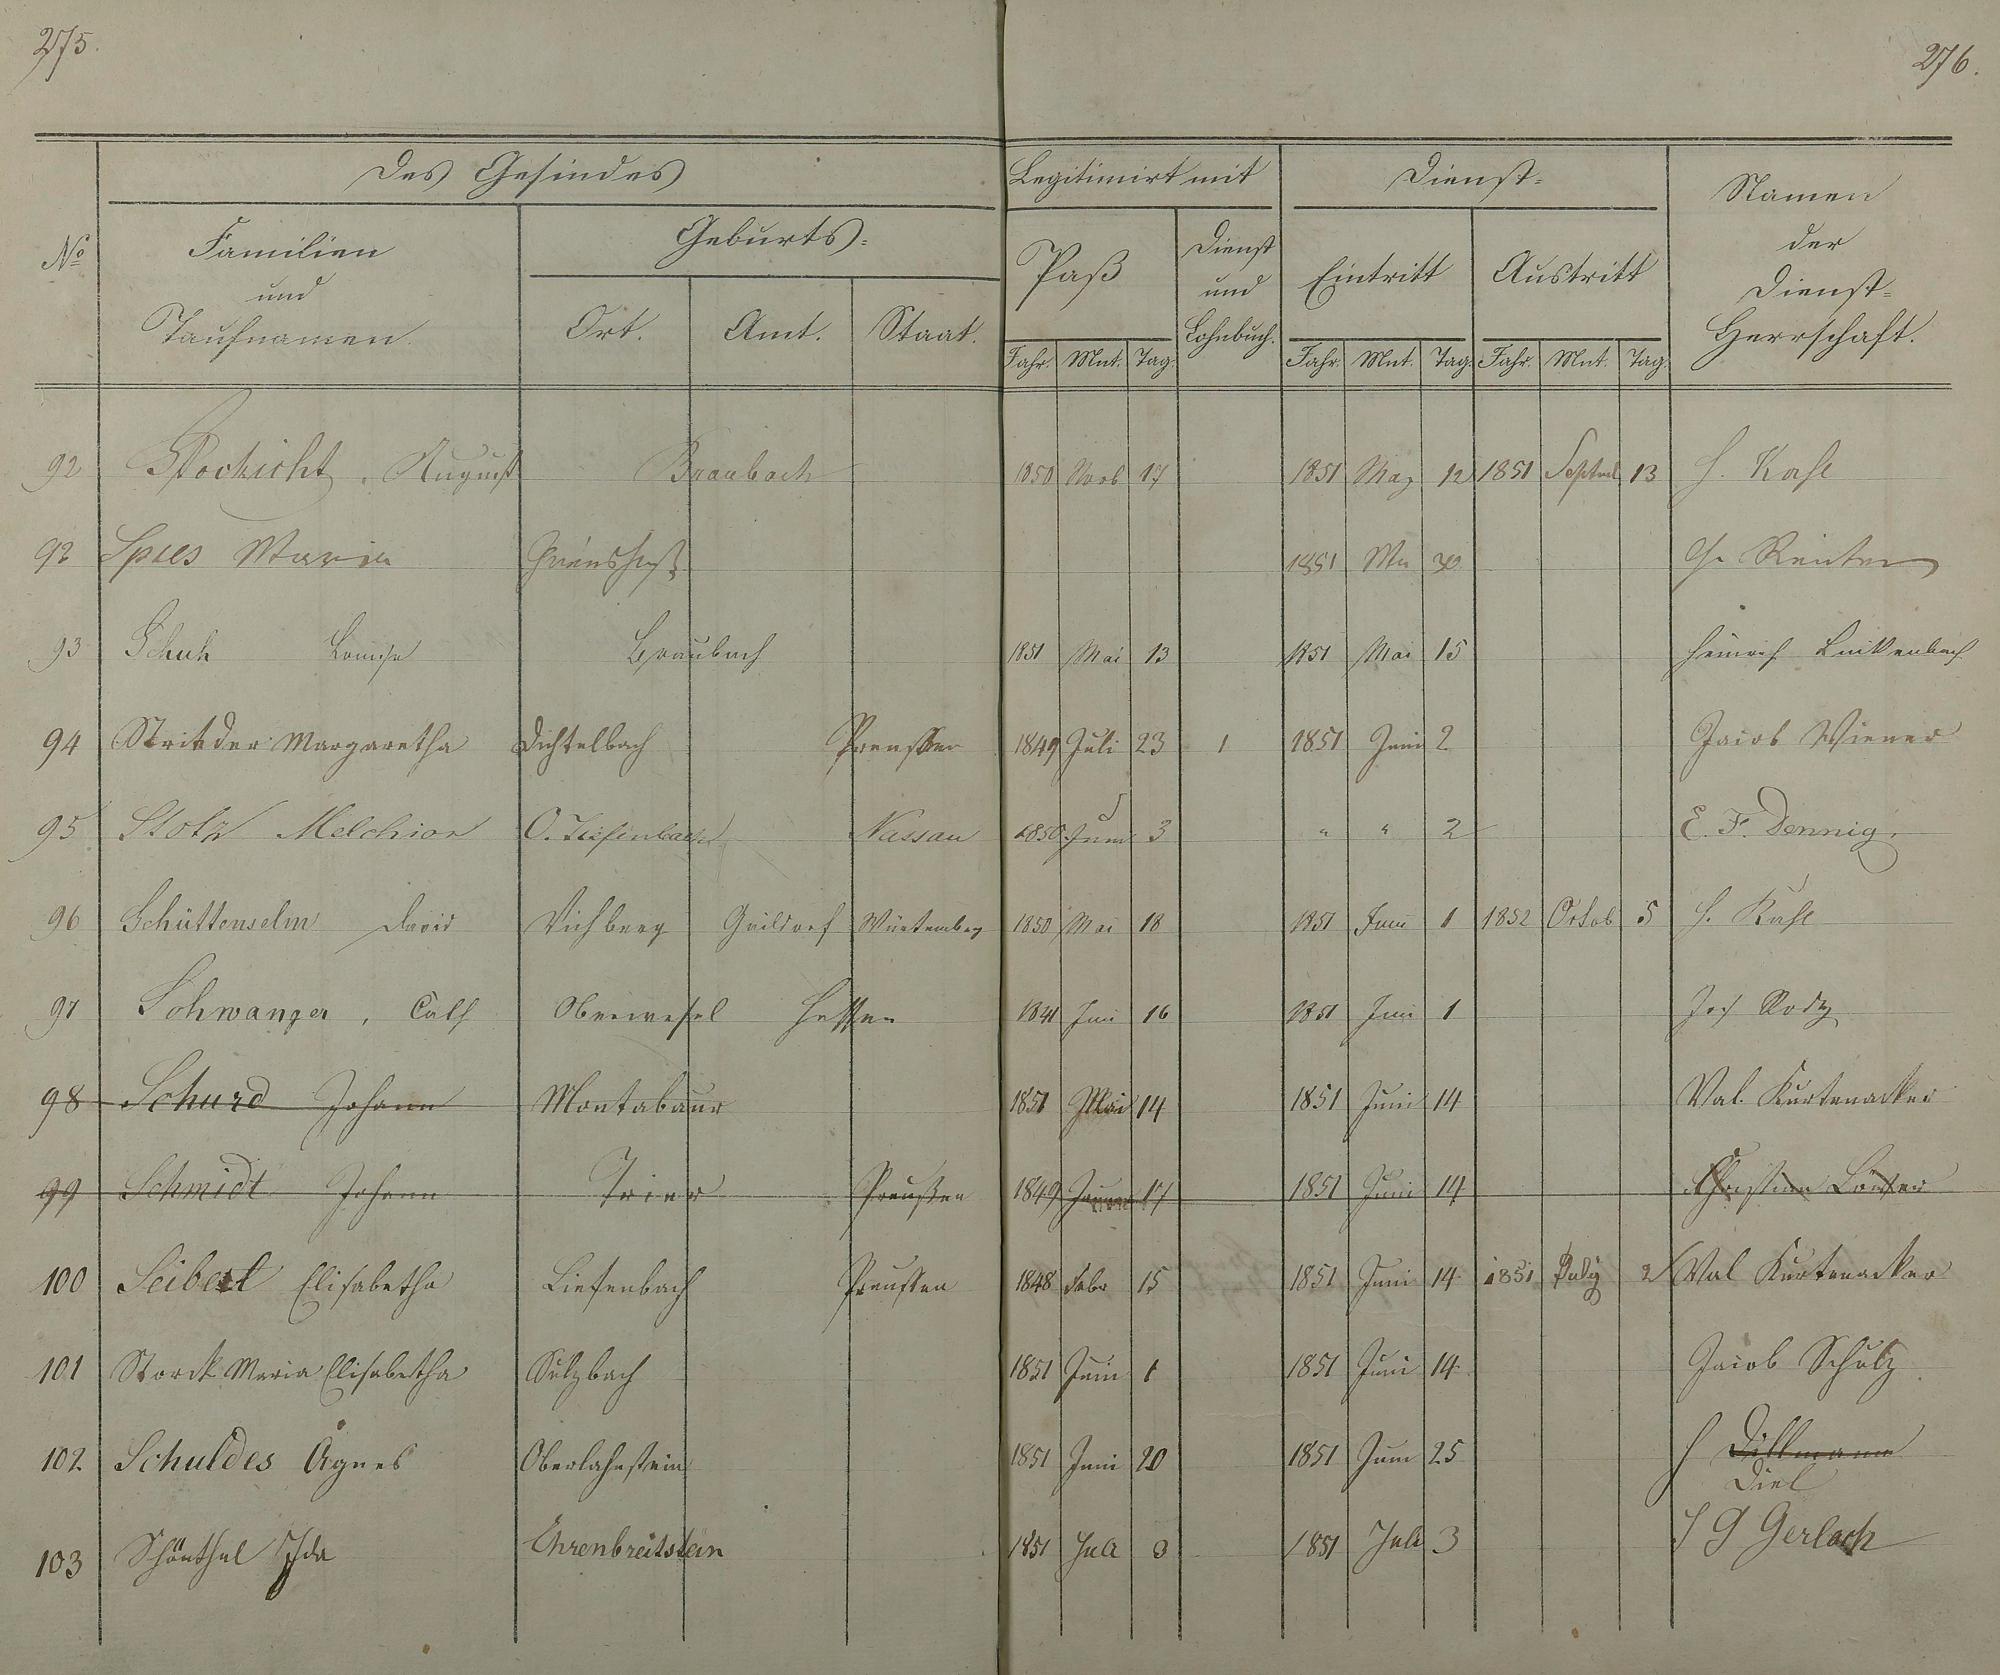 275.
276.
Des Gesindes
Legitimirt mit
Dienst-
Namen der Dienst-Herrschaft.
No
Familien und Taufnamen.
Geburts-
Paß
Dienst und Lohnbuch.
Eintritt
Austritt
Ort. Amt. Staat.
Jahr. Mnt. Tag. Jahr. Mnt. Tag. Jahr. Mnt. Tag.
92 August Braubach 1850 Novb 17 1851 May 12 1851 Septmb 13 H. Kahl
92 Spies Maria 1851 Mai 30 Reuter
93 Schuh Louise Braubach 1851 Mai 13 1851 Mai 15 Heinrich
94 Stritder Margaretha Dichtelbach Preussen 1849 Juli 23 1 1851 Juni 2 Jacob Wiener
95 Stotz Melchior O. Tiefenbach Nassau 1850 Juni 3 " " 2 E. F. Dennig.
96 Schüttenhelm David Vichberg Gaildorf Würtemberg 1850 Mai 18 1851 Juni 1 1852 Octob 5 H. Kahl
97 Schwanger, Oberwesel Hessen 1841 Juni 16 1851 Juni 1 Jos
98 Schurd Johann Montabaur 1851 Mai 14 1851 Juni 14 Val. Kurtenacker
99 Schmidt Johann Trier Preußen 1849 Januar 17 1851 Juni 14 Christian
100 Seibert Elisabetha Liefenbach Preussen 1848 Febr 15 1851 Juni 14 1851 July 2 Val Kurtenacker
101 Storck Maria Elisabetha Sulzbach 1851 Juni 1 1851 Juni 14 Jacob Schulz
102 Schuldes Agnes Oberlahnstein 1851 Juni 20 1851 Juni 25 H Dillmann
Diel
103 Schönthal Ida Ehrenbreitstein 1851 Juli 3 1851 Juli 3 J G Gerlach